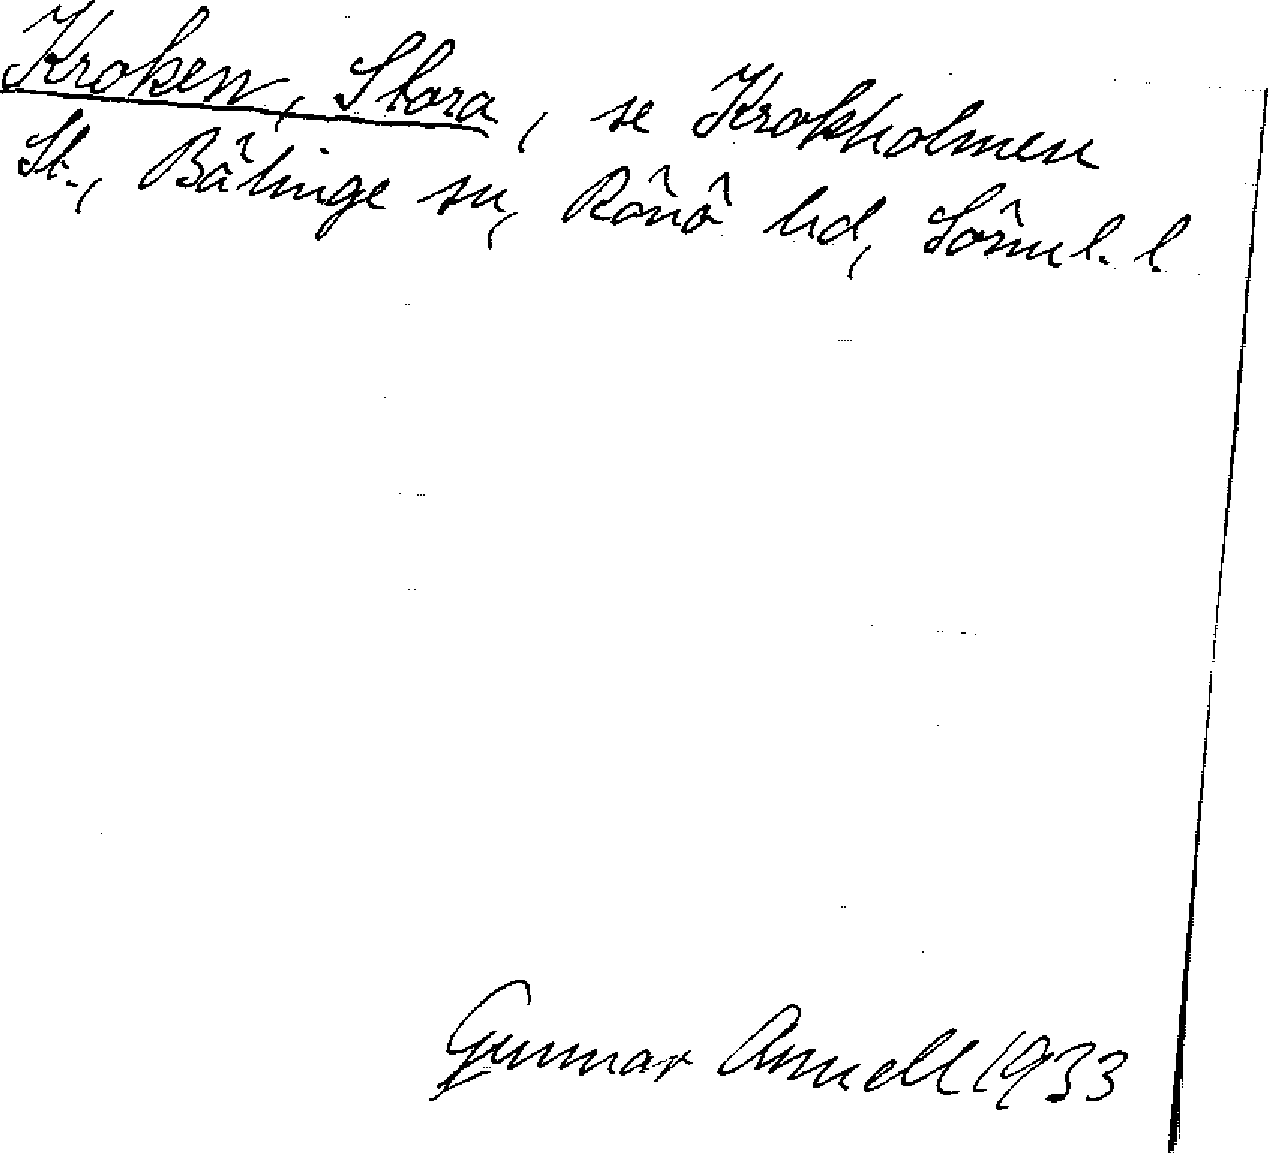 Kroken, Stora, se Krokholmen
St., Bälinge sn, Rönö hd, Sörml. l.
Gunnar Annell 1933